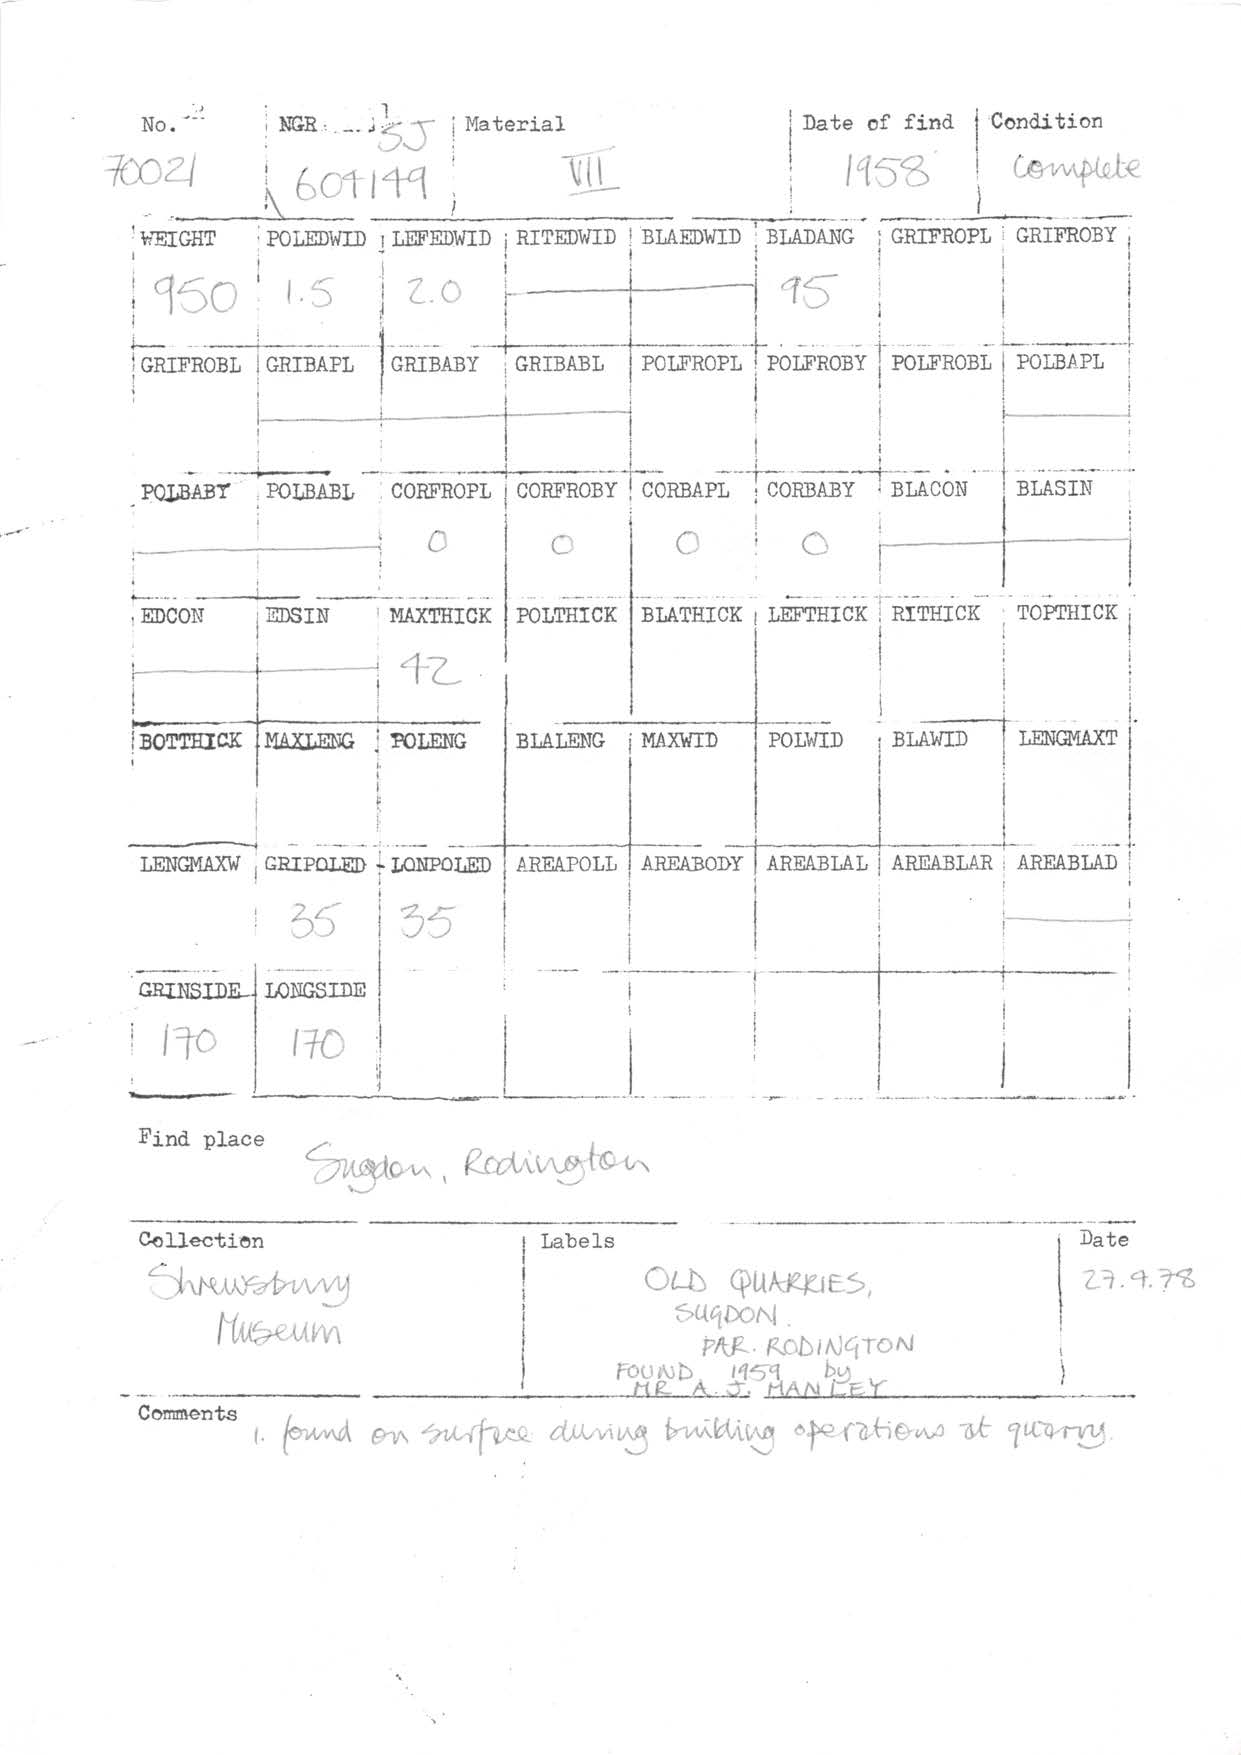 No. NGR SJ Material Date of find Condition
70021 604149 VII 1958 complete
WEIGHT POLEDWID LEFEDWID RITEDWID BLAEDWID BLADANG GRIFROPL GRIFROBY
950 1.5 2.0 95
GRIFROBL GRIBAPL GRIBABY GRIBABL POLFROPL POLFROBY POLFROBL POLBAPL
POLBABY POLBABL CORFROPL CORFROBY CORBAPL CORBABY BLACON BLASIN
0 0 0 0
EDCON EDSIN MAXTHICK POLTHICK BLATHICK LEFTHICK RITHICK TOPTHICK
42
BOTTHICK MAXLENG POLENG BLALENG MAXWID POLWID BLAWID LENGMAXT
LENGMAXW GRIPOLED LONPOLED AREAPOLL AREABODY AREABLAL AREABLAR AREABLAD
35 35
GRINSIDE LONGSIDE
170 170
Find place
Sugdon, Rodington
Collection Labels Date
Shrewsbury OLD QUARRIES, 27.9.78
Museum SUGDON.
PAR. RODINGTON
FOUND 1959 by
MR A. J. MANLEY
Comments 1. found on surface during building operations at quarry.